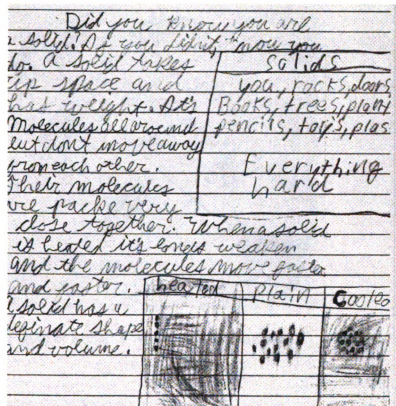 Did you know you are
a solid? If you didn't, now you
do. A solid takes
up space and
has weight. It's
Molecules all around
but dont move away
from each other.
Their molecules
are packe very
close together. When a solid
is heated it's bonds weaken
and the molecules move faster
and easier.
A solid has a
definate shape
and volume.
Solids
you, rocks, doors
Books, trees, plant
pencils, toys, plas
Everything
hard
heated
Plain
Cooled